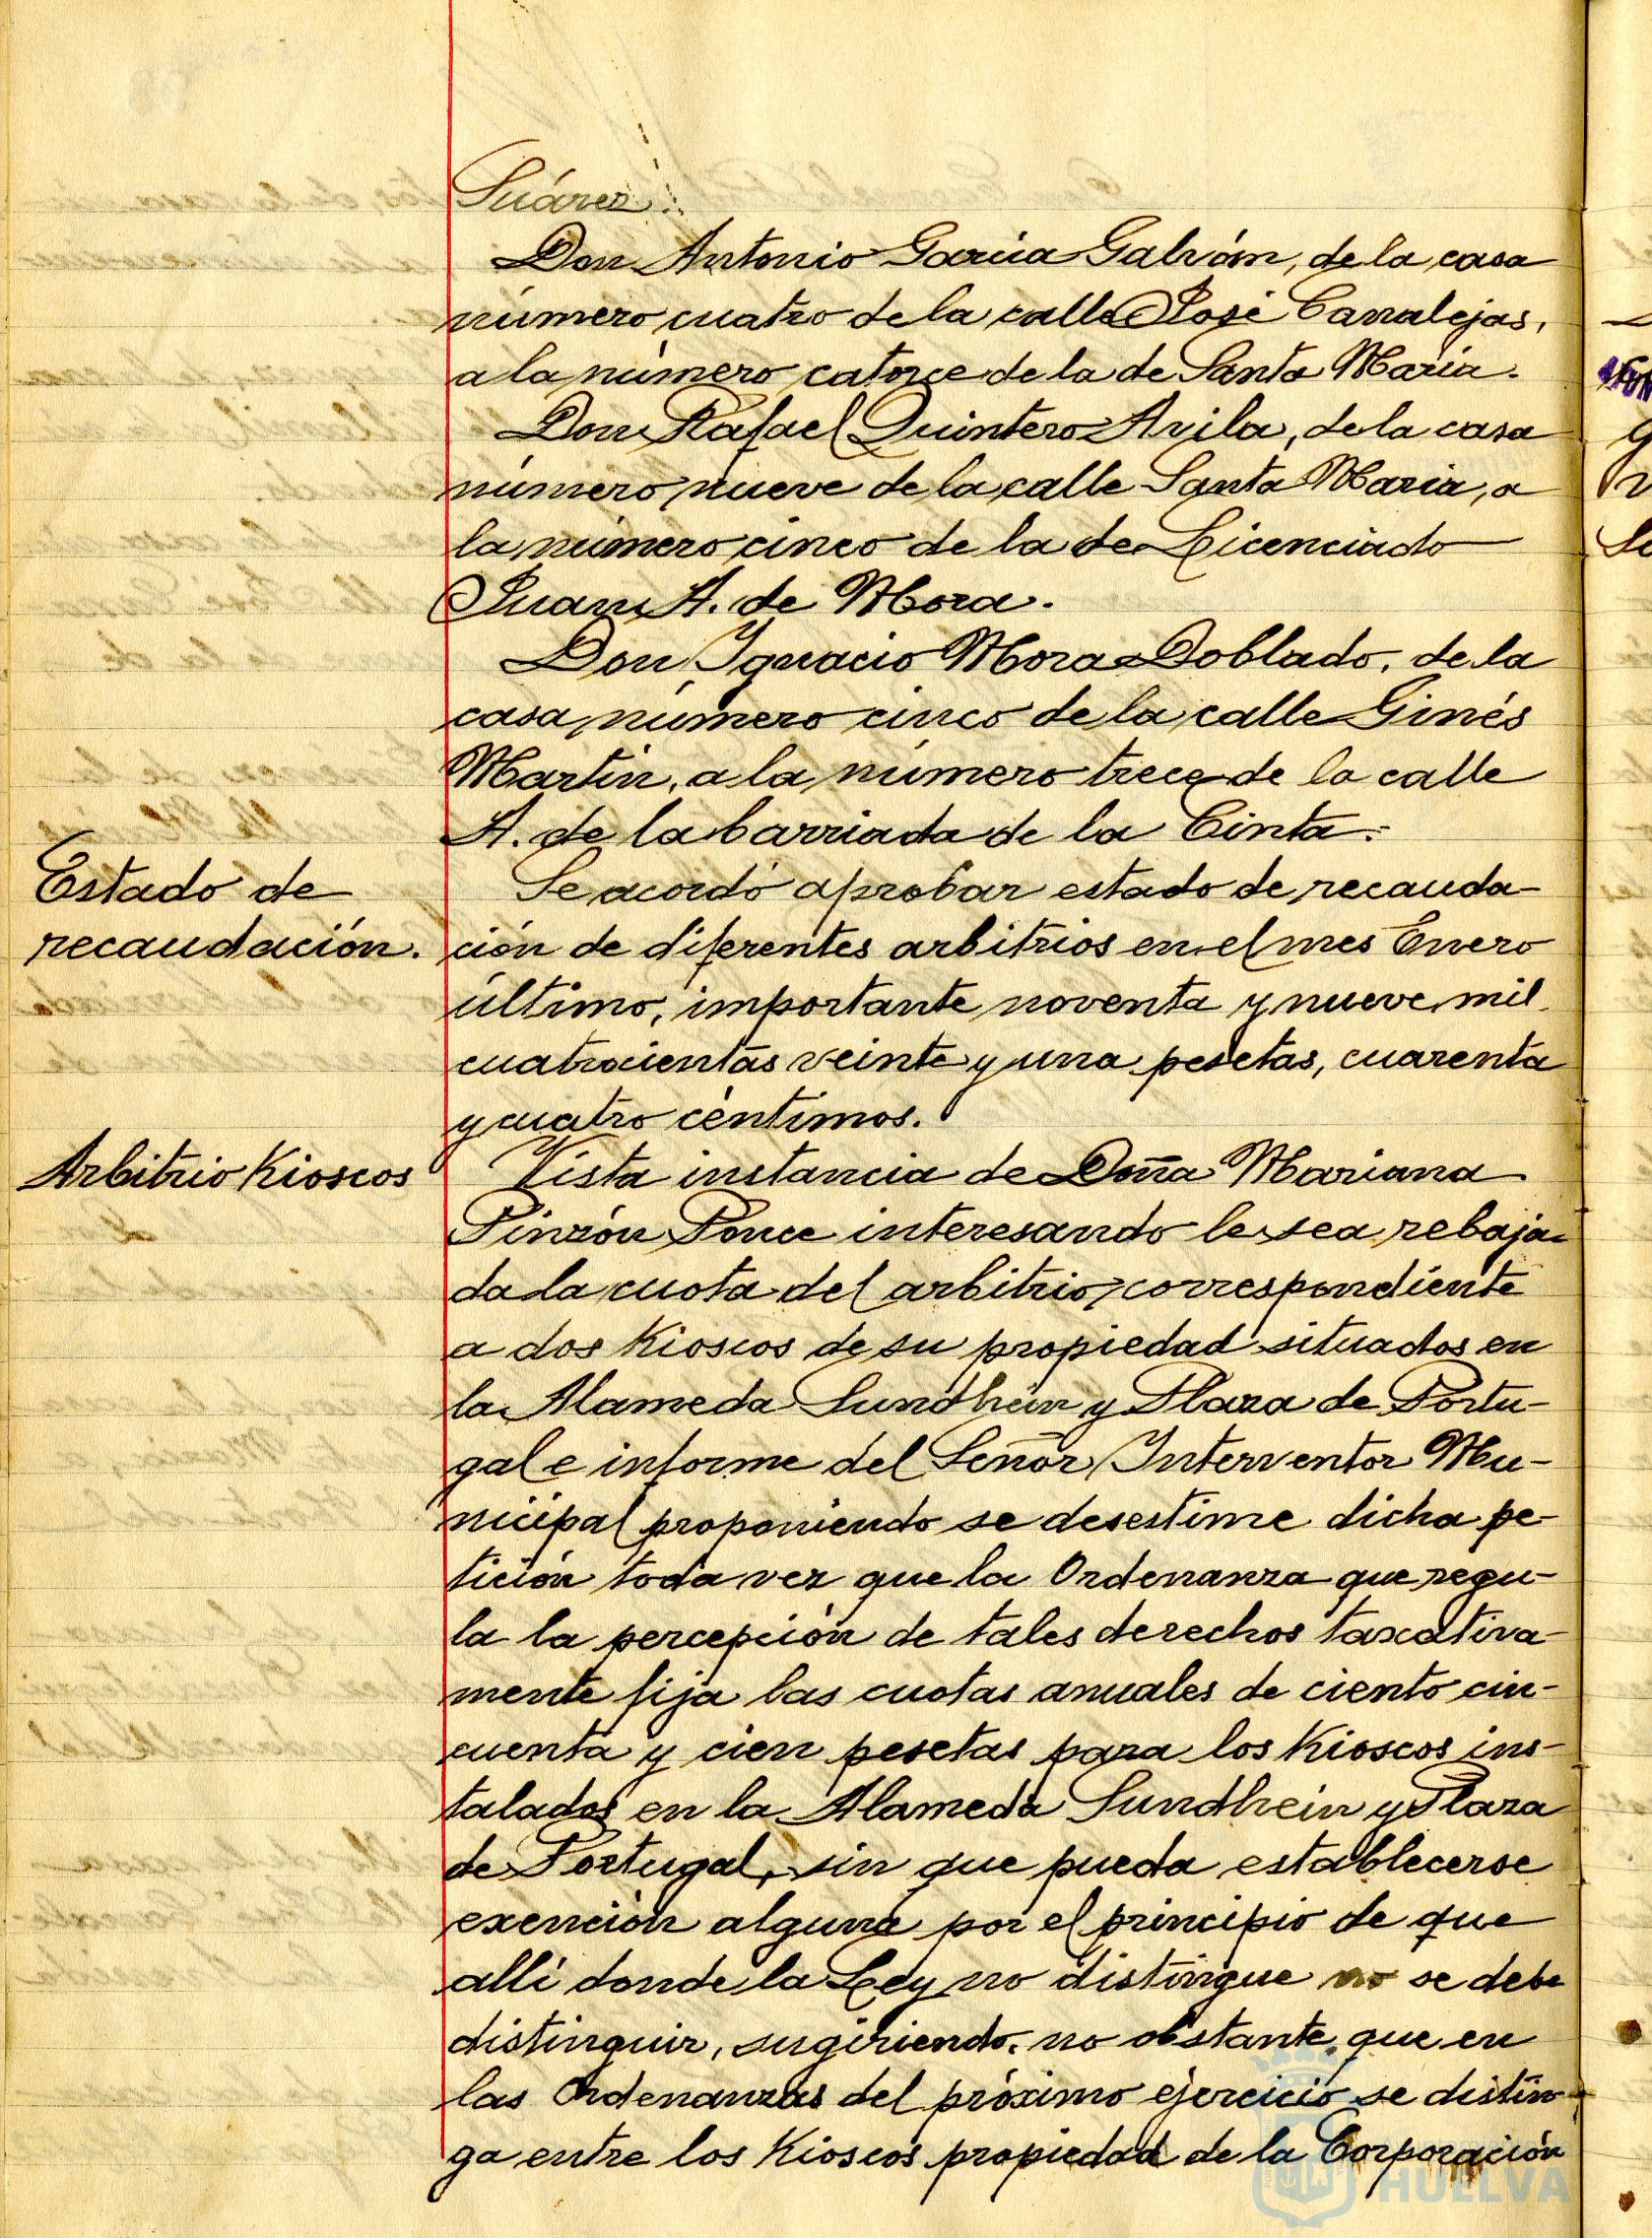 Suárez.
Don Antonio García Galván, de la casa
número cuatro de la calle José Canalejas,
a la número catorce de la de Santa María.
Don Rafael Quintero Avila, de la casa
número nueve de la calle Santa María, a
la número cinco de la de Licenciado
Juan A. de Mora.
Don Ignacio Mora Doblado, de la
casa número cinco de la calle Ginés
Martín, a la número trece de la calle
A. de la barriada de la Cinta.
Estado de
recaudación.
Se acordó aprobar estado de recauda-
ción de diferentes arbitrios en el mes Enero
último, importante noventa y nueve mil
cuatrocientas veinte y una pesetas, cuarenta
y cuatro céntimos.
Arbitrio Kioscos
Vista instancia de Doña Mariana
Pinzón Ponce interesando le sea rebaja-
da la cuota del arbitrio, correspondiente
a dos Kioscos de su propiedad situados en
la Alameda Sundhein y Plaza de Portu-
gal e informe del Señor Interventor Mu-
nicipal proponiendo se desestime dicha pe-
tición toda vez que la Ordenanza que regu-
la la percepción de tales derechos taxativa-
mente fija las cuotas anuales de ciento cin-
cuenta y cien pesetas para los Kioscos ins-
talados en la Alameda Sundhein y Plaza
de Portugal, sin que pueda establecerse
exención alguna por el principio de que
allí donde la Ley no distingue no se debe
distinguir, sugiriendo, no obstante, que en
las Ordenanzas del próximo ejercicio se distin-
ga entre los Kioscos propiedad de la Corporación
HUELVA